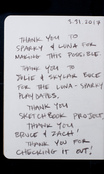 3.31.2014
THANK YOU TO
SPARKY & LUNA FOR
MAKING THIS POSSIBLE.
THANK YOU TO
JULIE & SKYLAR
FOR THE LUNA-SPARKY
PLAYDATES.
THANK YOU
SKETCHBOOK PROJECT,
THANK YOU
BRUCE & ZACH!
THANK YOU FOR
CHECKING IT OUT!